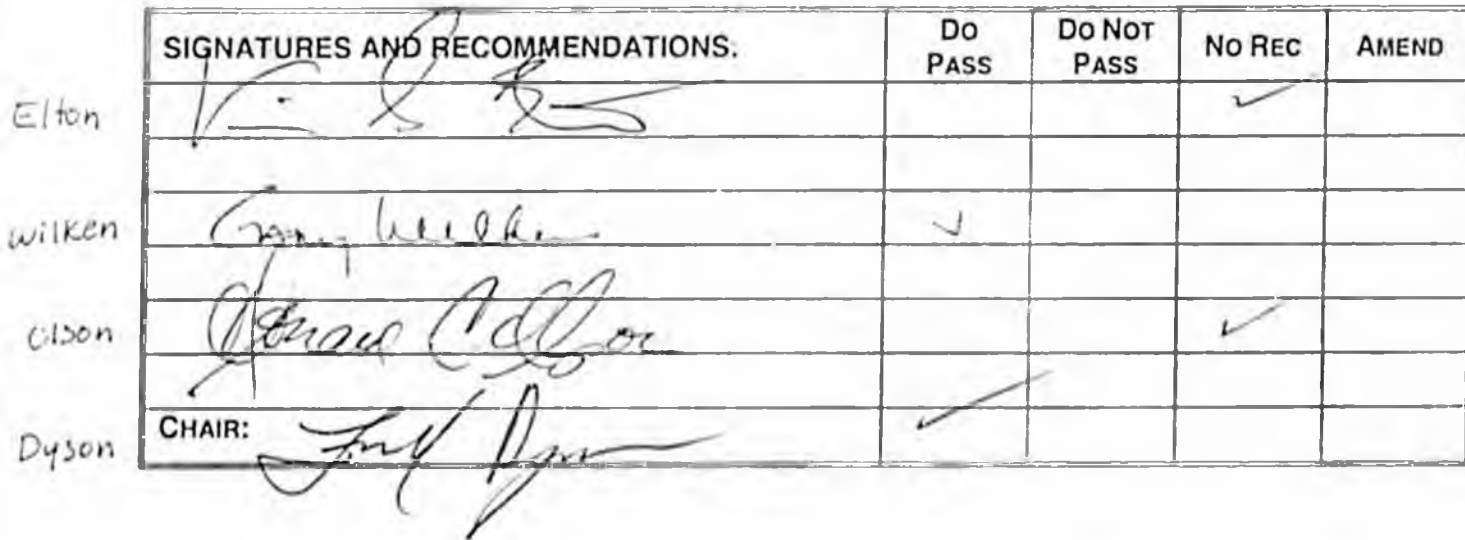 SIGNATURES AND RECOMMENDATIONS: DO PASS DO NOT PASS NO REC AMEND
Elton ✓
Wilken Gary Wilken ✓
Olson ✓
Dyson CHAIR: Dyson ✓